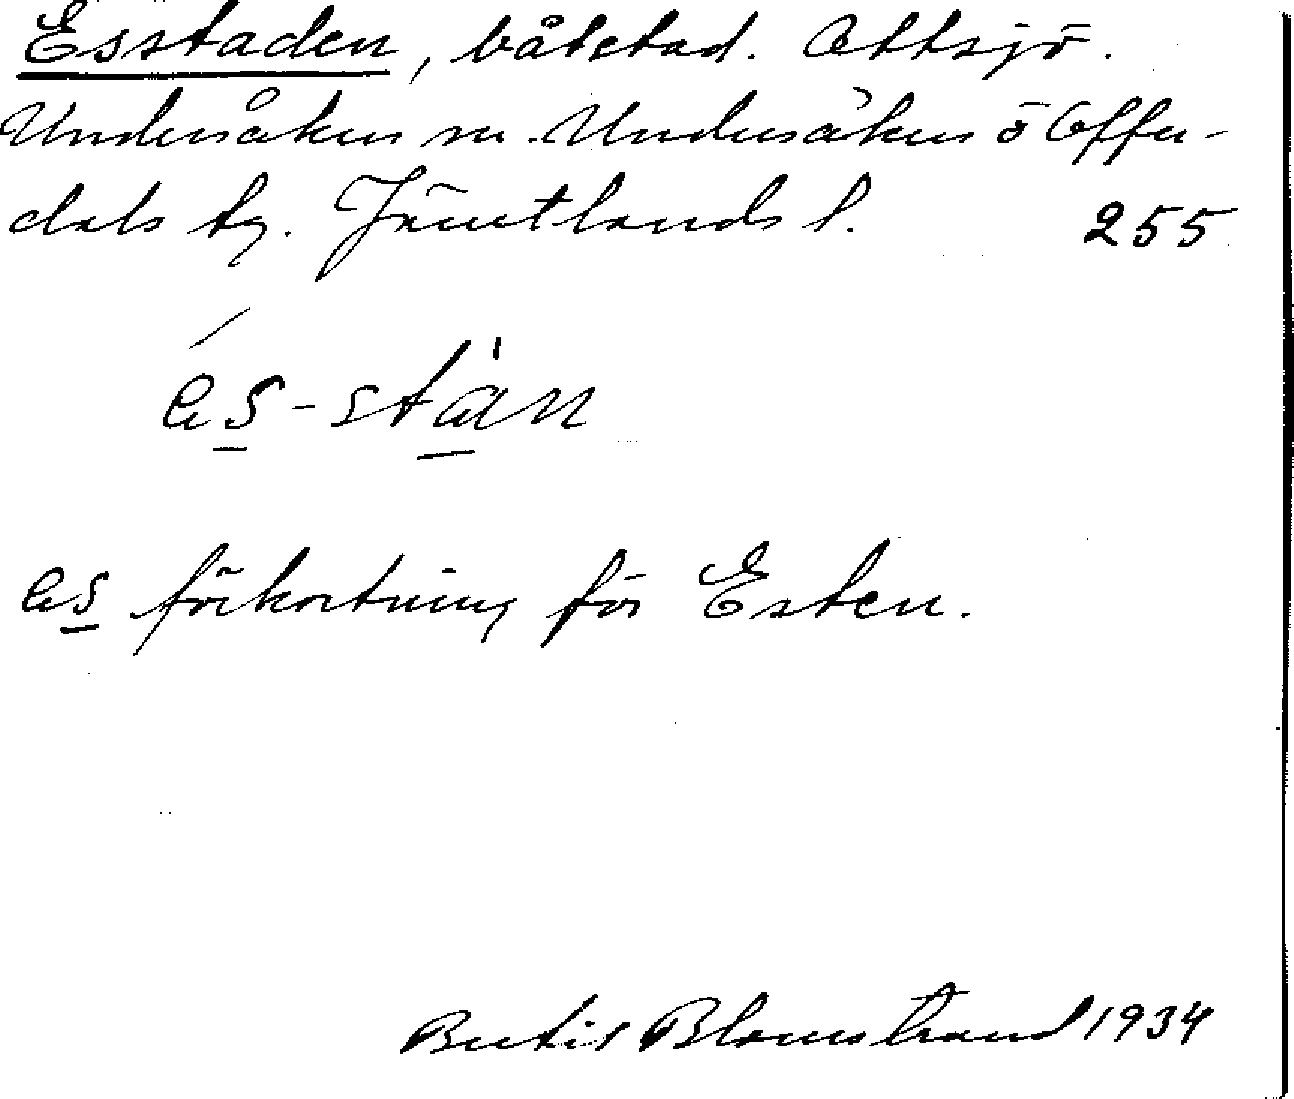 Esstaden, båtstad. Ottsjö.
Undersåkers sn. Undersåkers o Offer-
dals tg. Jämtlands l. 255
es-stán
es förkortning för Esten.
Bertil Blomstrand 1934